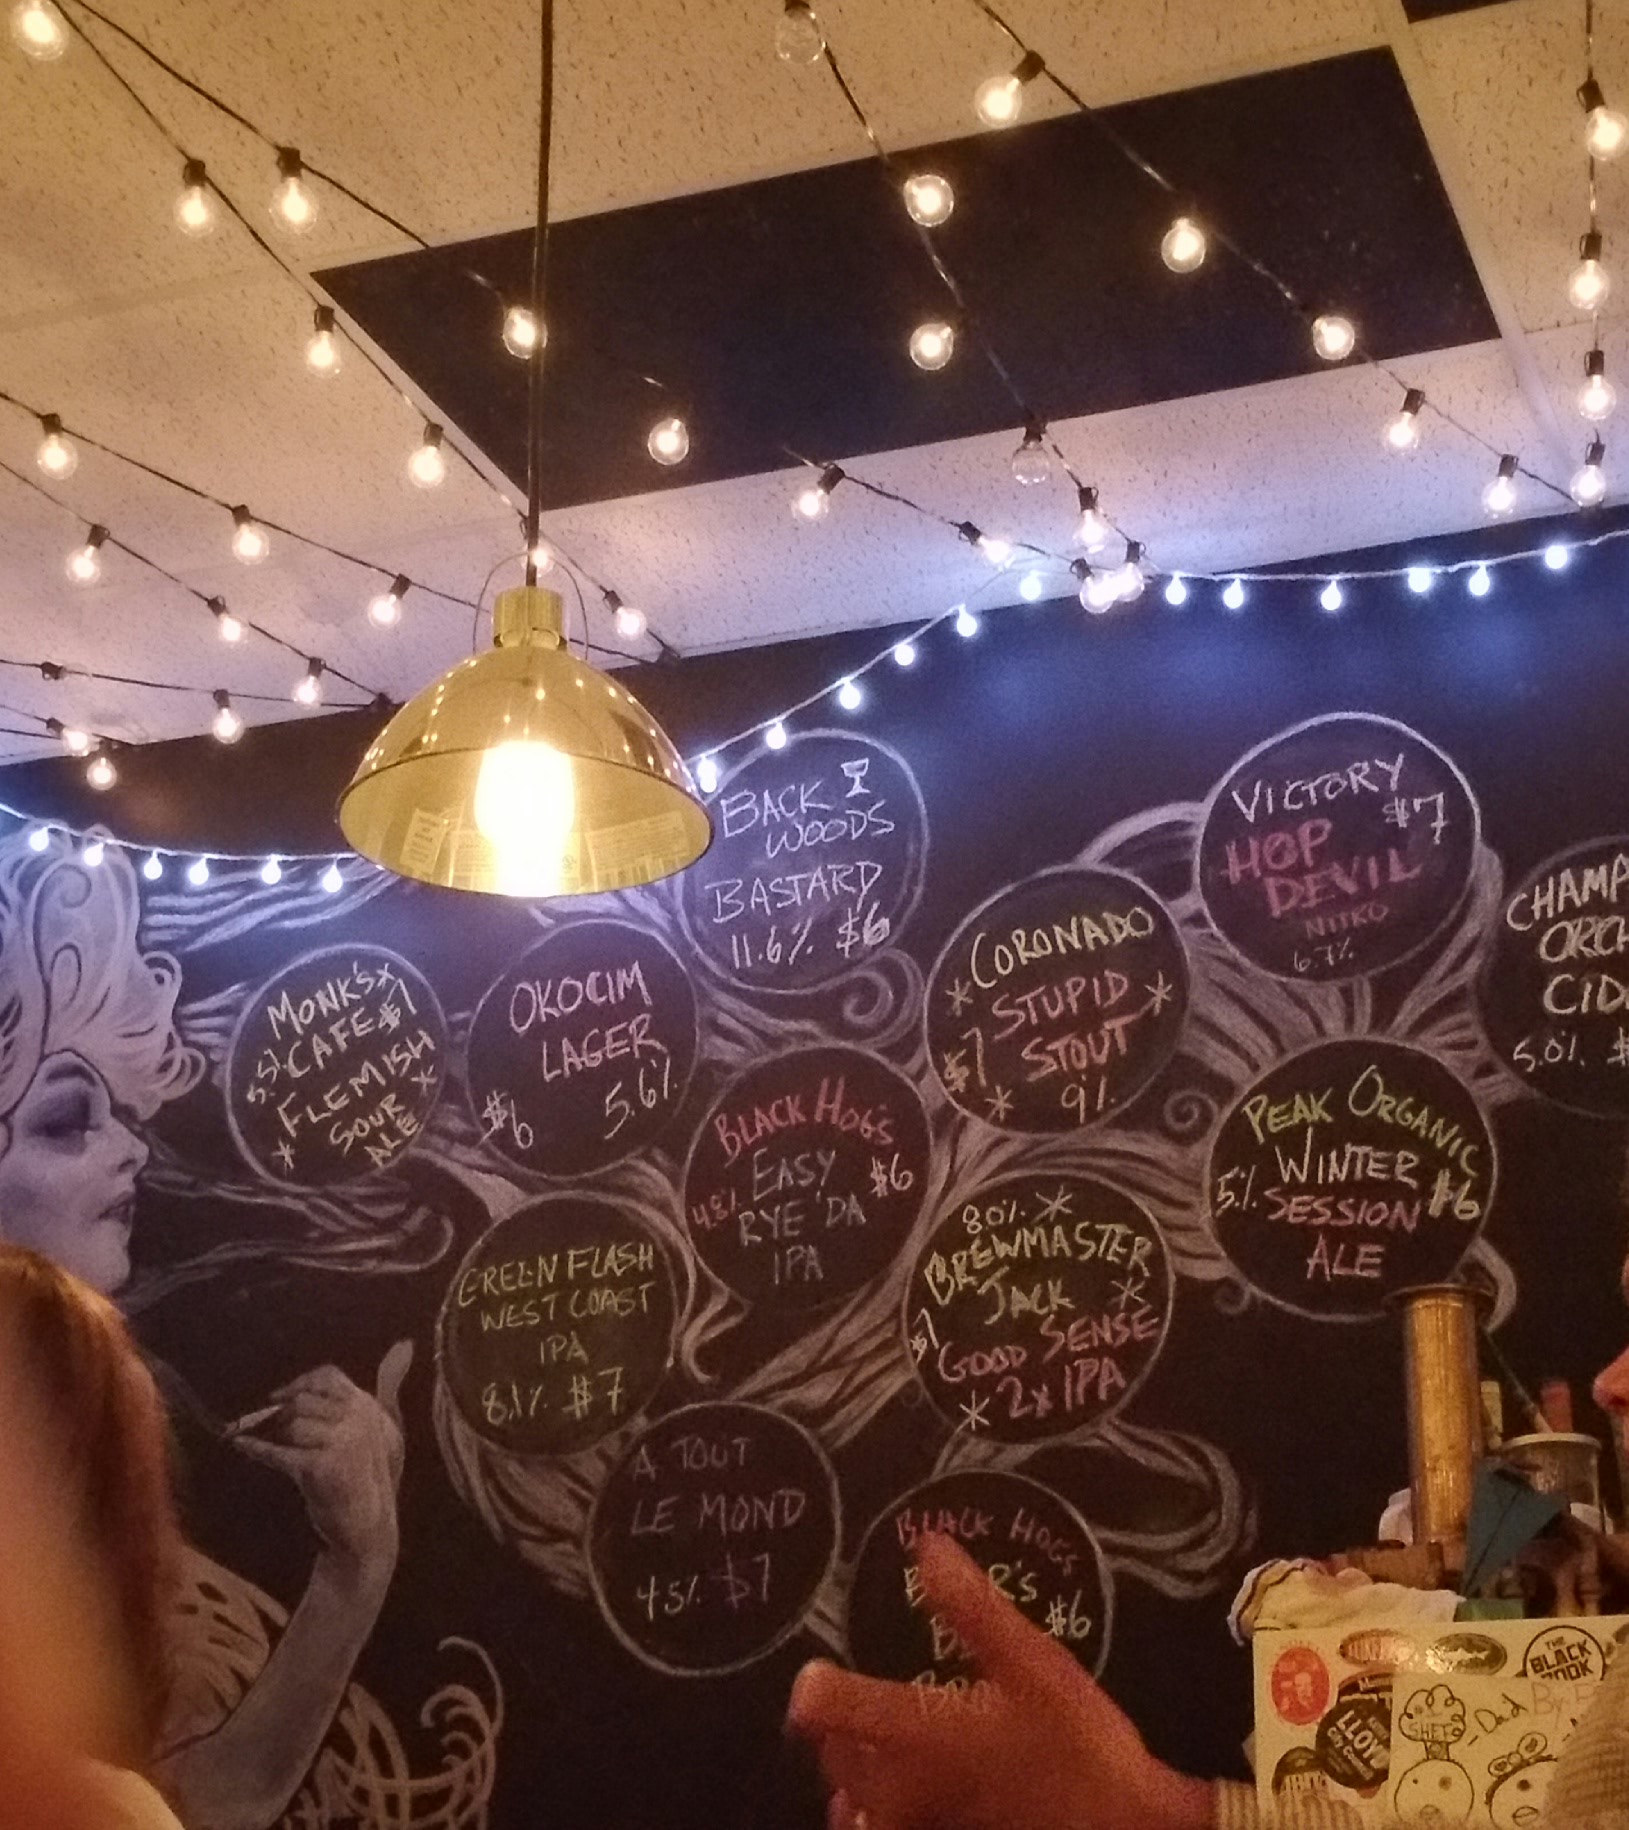 BACK
WOODS
BASTARD
11.6% $6
VICTORY
$7
HOP
DEVIL
NITRO
6.7%
CORONADO
STUPID
$7
STOUT
9%
5.0%
MONK'S
CAFE $7
5.5%
FLEMISH
SOUR
ALE
OKOCIM
LAGER
$6 5.6%
BLACK HOG'S
EASY $6
4.8%
RYE 'DA
IPA
PEAK ORGANIC
5% WINTER $6
SESSION
ALE
GREEN FLASH
WEST COAST
IPA
8.1% $7
8.0%
BREWMASTER
JACK
$7
GOOD SENSE
2x IPA
A TOUT
LE MOND
4.5% $7
BLACK HOGS
$6
THE
BLACK
LLOYD
SHEF
Dad